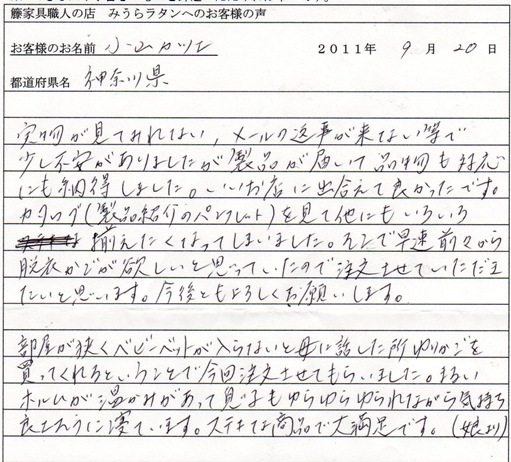 籐家具職人の店 みうらラタンへのお客様の声
お客様のお名前 小山カツエ 2011年 9月 20日
都道府県名 神奈川県
実物が見ておれない、メールの返事が来ない等で
少し不安がありましたが製品が届いて品物も対応
にも納得しました。いいお店に出合えて良かったです。
カタログ(製品紹介のパンフレット)を見て他にもいろいろ
揃えたくなってしまいました。そこで早速前々から
脱衣かごが欲しいと思っていたので注文させていただき
たいと思います。今後ともよろしくお願いします。
部屋が狭くベビーベットが入らないと母に話した所ゆりかごを
買ってくれるということで今回注文させてもらいました。まるい
ホルムが温かみがあって見た目もゆらゆらゆられながら気持ち
良さそうに寝ています。ステキな商品で大満足です。(娘より)